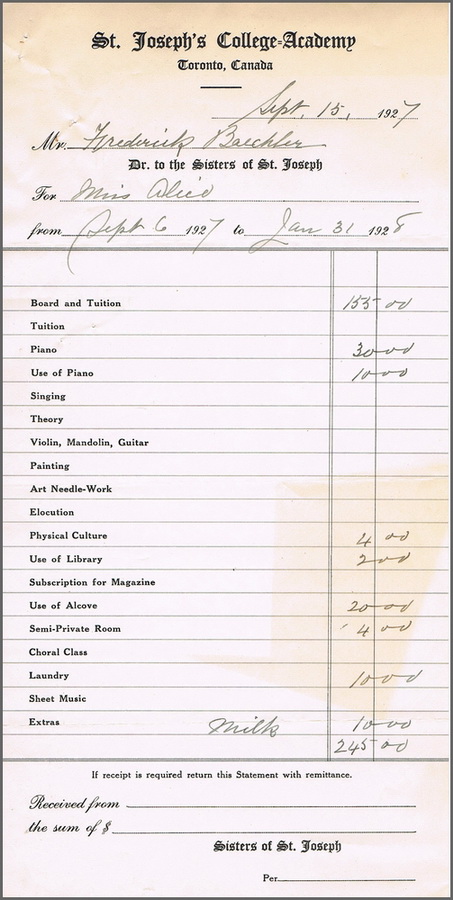 St. Joseph's College-Academy
Toronto, Canada
Sept. 15, 1927
Mr. Frederick Baechler
Dr. to the Sisters of St. Joseph
For Miss Alice
from Sept 6 1927 to Jan 31 1928
Board and Tuition 155 00
Tuition
Piano 30 00
Use of Piano 10 00
Singing
Theory
Violin, Mandolin, Guitar
Painting
Art Needle-Work
Elocution
Physical Culture 4 00
Use of Library 2 00
Subscription for Magazine
Use of Alcove 20 00
Semi-Private Room 4 00
Choral Class
Laundry 10 00
Sheet Music
Extras Milk 10 00
245 00
If receipt is required return this Statement with remittance.
Received from
the sum of $
Sisters of St. Joseph
Per